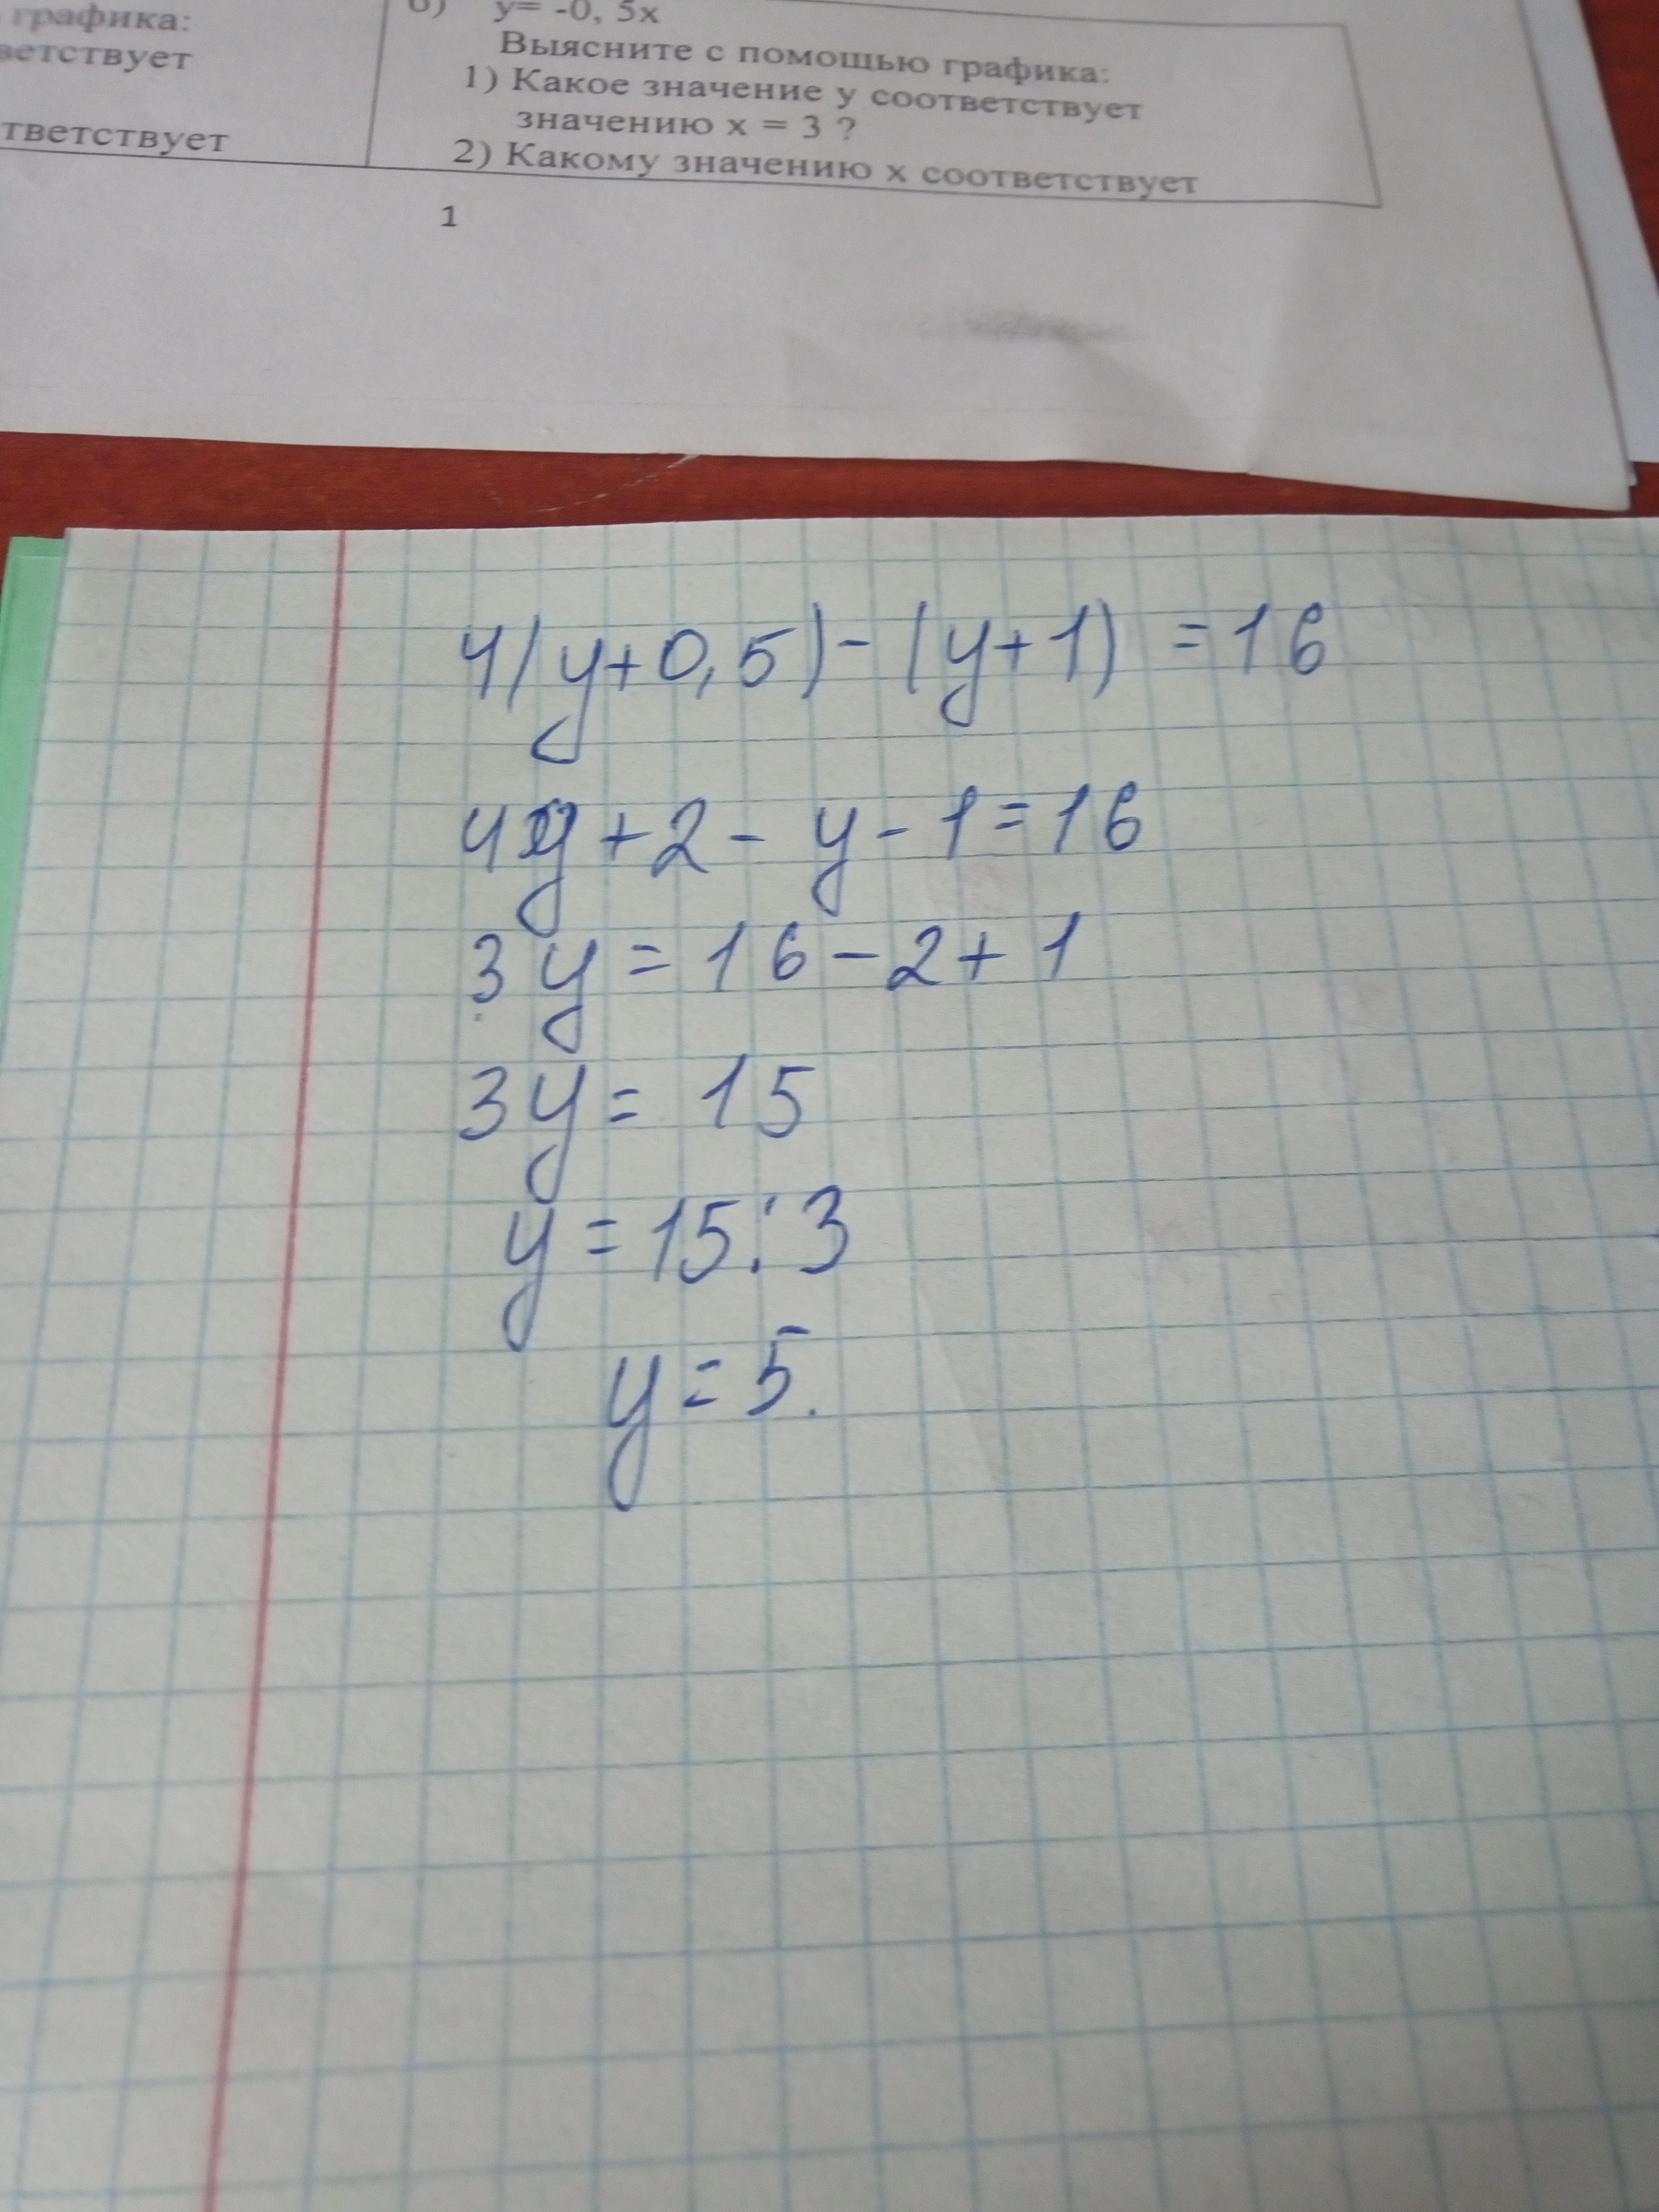 графика:
ветствует
тветствует
б) y= -0, 5x
Выясните с помощью графика:
1) Какое значение y соответствует
значению x = 3 ?
2) Какому значению x соответствует
1
4(y+0,5)-(y+1) =16
4y+2-y-1=16
3y=16-2+1
3y= 15
y=15:3
y=5.